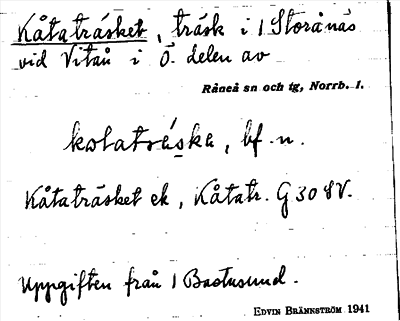 Kåtaträsket, träsk i 1 Storånäs
vid Vitån i Ö. delen av
Råneå sn och tg, Norrb. l.
kolatrȧske, bf. n.
Kåtaträsket ek, Kåtatr. G 30 SV.
Uppgiften från 1 Bastusund.
EDVIN BRÄNNSTRÖM 1941